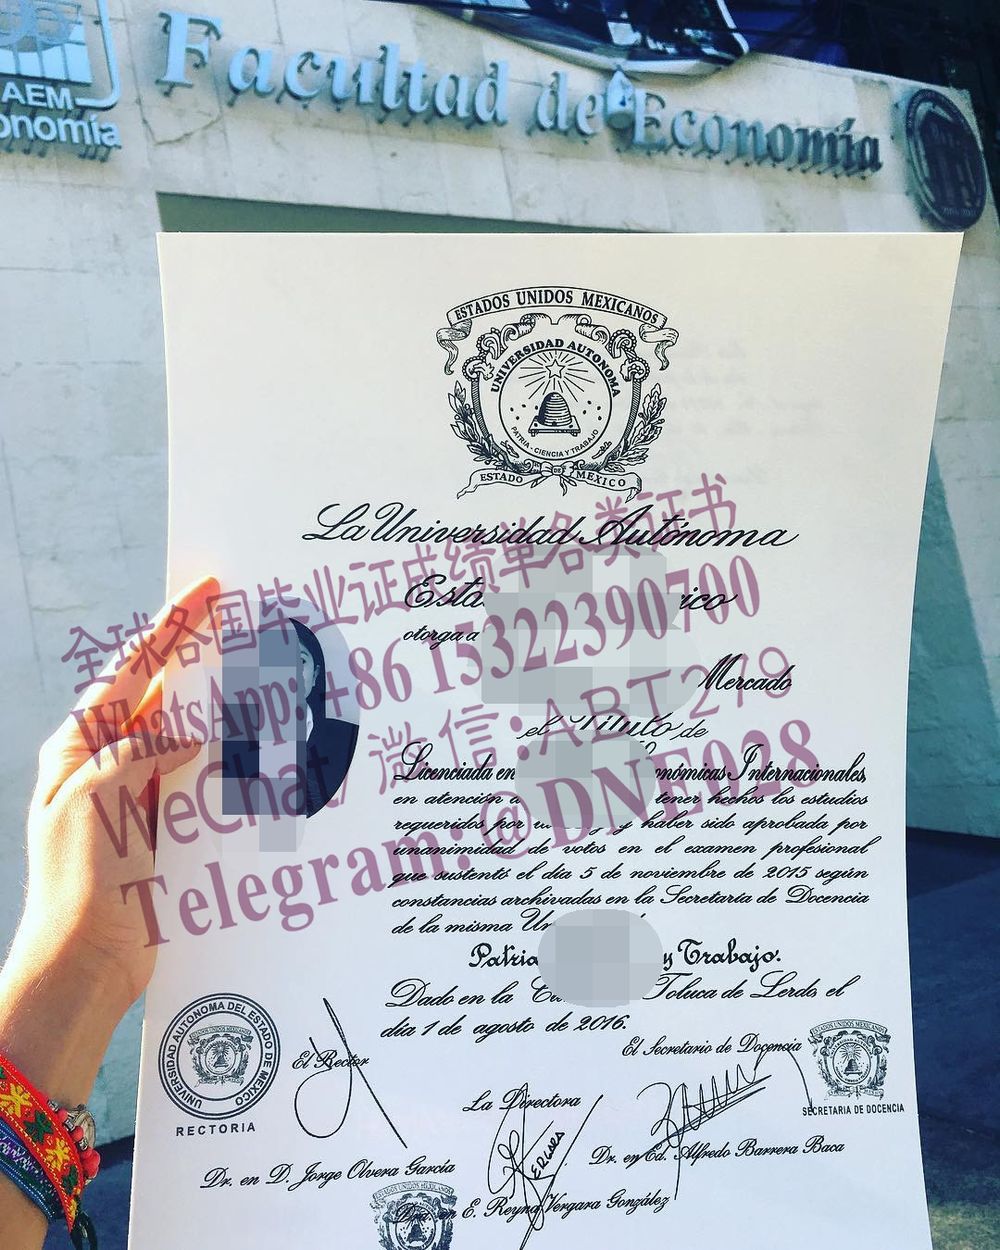 AEM
onomía
Facultad de Economía
ESTADOS UNIDOS MEXICANOS
UNIVERSIDAD AUTONOMA
PATRIA - CIENCIA Y TRABAJO
ESTADO DE MEXICO
La Universidad Autónoma
Esta ico
otorga a
Mercado
el Título de
Licenciada en onómicas Internacionales,
en atención a tener hechos los estudios
requeridos por y haber sido aprobada por
unanimidad de votos en el examen profesional
que sustentó el día 5 de noviembre de 2015 según
constancias archivadas en la Secretaría de Docencia
de la misma Un
Patria y Trabajo.
Dado en la Toluca de Lerdo el
día 1 de agosto de 2016.
全球各国毕业证成绩单各类证书
WhatsApp: +86 15322390700
WeChat/微信:ABT278
Telegram: @DNE028
UNIVERSIDAD AUTONOMA DEL ESTADO DE MEXICO
RECTORIA
El Rector
El Secretario de Docencia
ESTADOS UNIDOS MEXICANOS
SECRETARIA DE DOCENCIA
La Directora
Dr. en D. Jorge Olvera García
Dr. en Ed. Alfredo Barrera Baca
en E. Reyna Vergara González
ESTADOS UNIDOS MEXICANOS